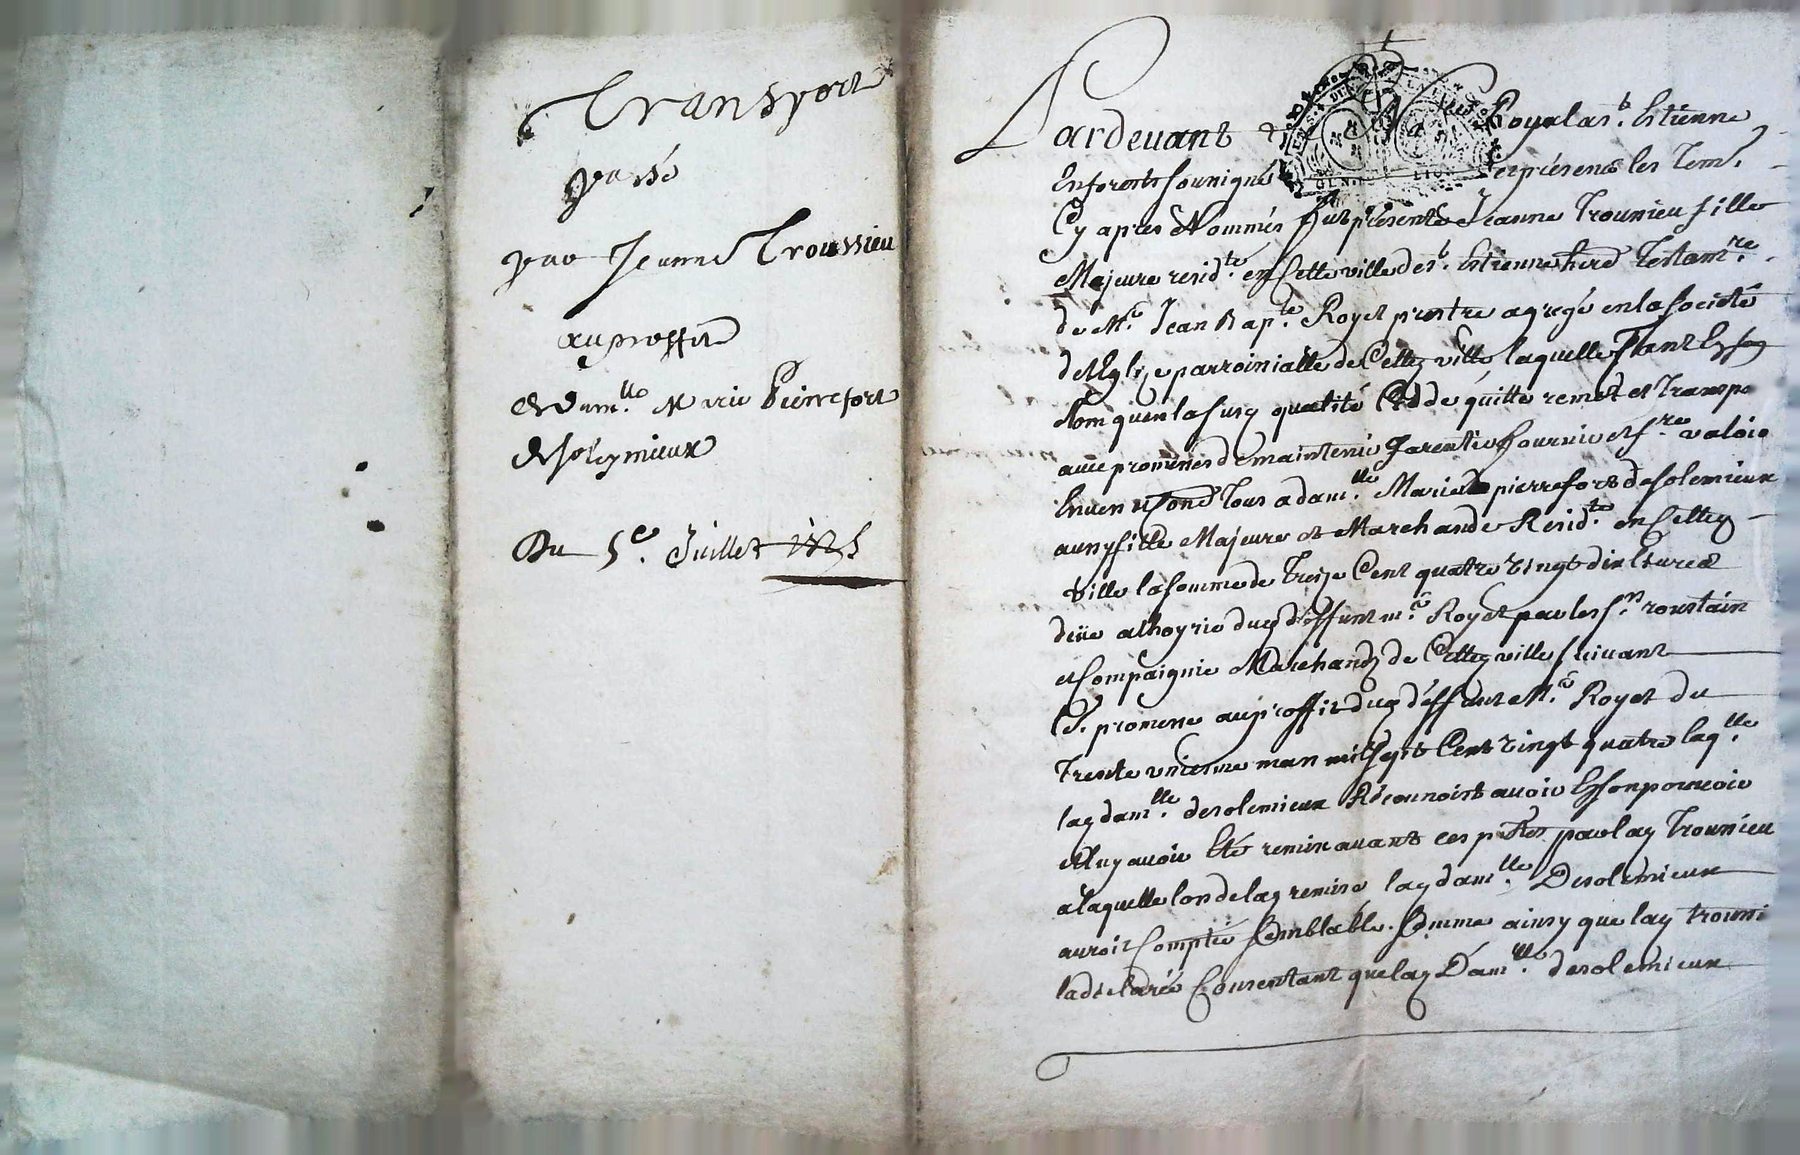 Transport
passé
par Jeanne Troussieu
au proffit
de dam.lle Marie Pierrefort
de soleymieux
Du 5e. Juillet 1725
Pardevant le No.re Royal a st. Estienne
En forests soussigné et présens les Tem.
Cy aprés Nommés fut présente Jeanne Troussieu fille
Majeure resid.te en Cette ville de st. Estienne herd Testam.re
de M.e Jean Bap.te Royet prestre agregé en la societé
de l'Eglize parroissialle de Cette ville, laquelle Tant En son
Nom qu'en la susd qualité Cedde quitte remet et Transpo
avec promesses de maintenir garentir fournir et f.re valoir
Envers et Contre Tous a dam.lle Marie pierrefort de solemieux
aussy fille Majeure et Marchande Resid.te en Cetted
Ville la somme de Treize Cent quatre vingt dix Livres
deüe a lhoyrie dud deffunt m.e Royet par les s.rs roustain
et Compaignie Marchands de Cetted ville suivant
La promesse au proffit dud déffunt M.e Royet du
Trente unieme mars mil sept Cent vingt quatre laq.lle
lad dam.lle de solemieux Réconnoist avoir En son pouvoir
et luy avoir Eté remise avant ces p.ntes par lad Troussieu
a laquelle lors de lad remise lad dam.lle De solemieux
auroit Comptée Semblable Somme ainsy que lad Troussi
la déclarée Consentant que lad Dam.lle de solemieux
GEN. LION